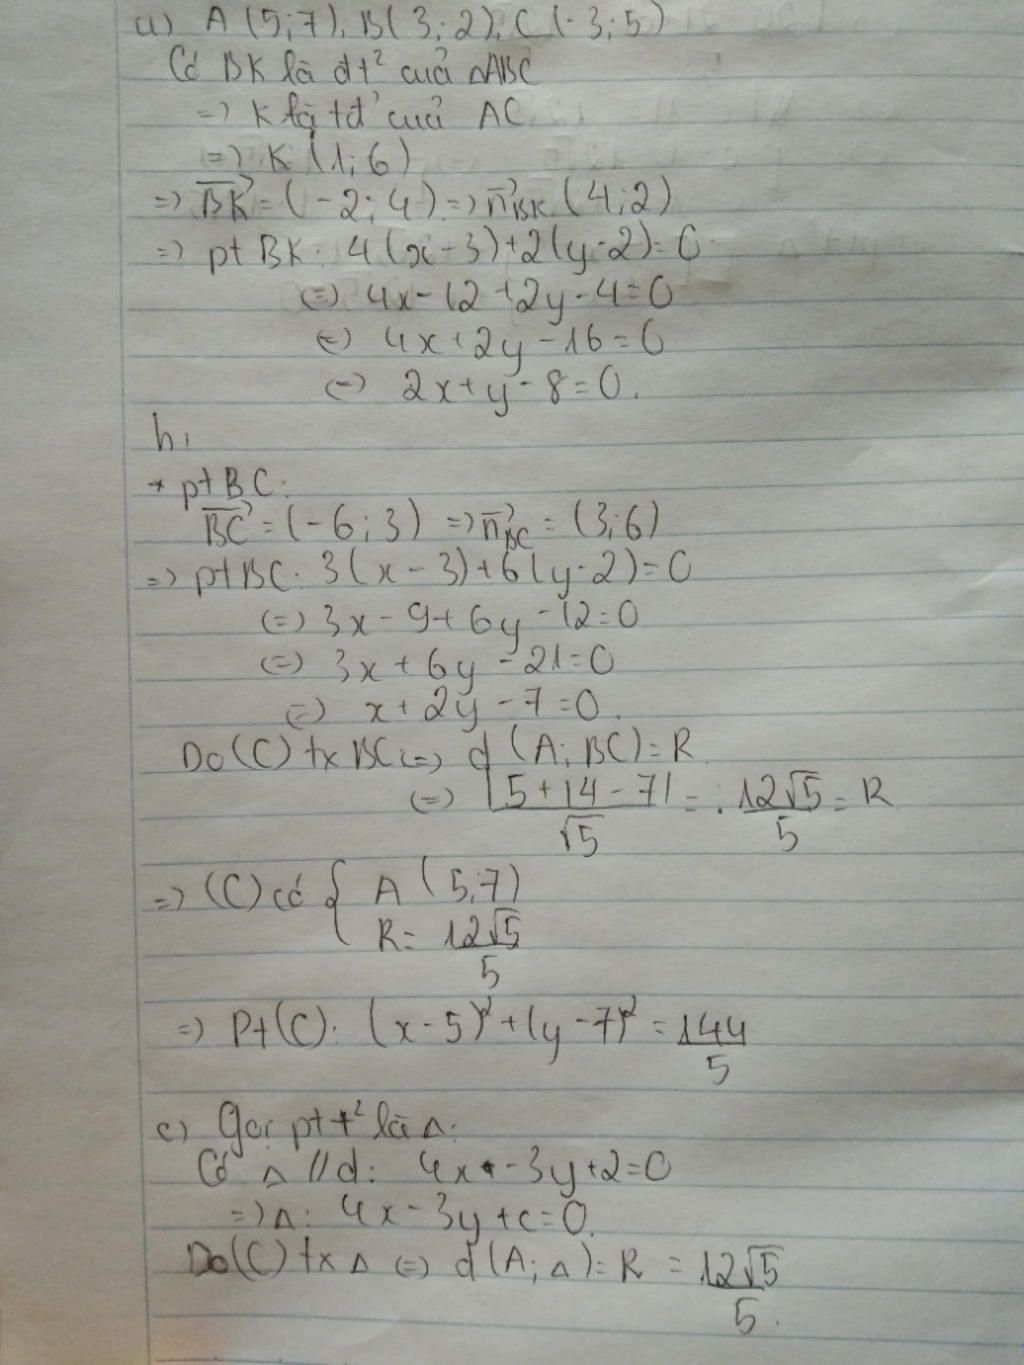 a) A(5;7), B(3;2), C(-3;5)
Có BK là đt² của ΔABC
=> K là tđ' của AC
=> K(1;6)
=> BK→ = (-2;4) => n→BK (4;2)
=> pt BK: 4(x-3)+2(y-2)=0
(=) 4x-12+2y-4=0
(=) 4x+2y-16=0
(=) 2x+y-8=0.
h,
* pt BC:
BC→ = (-6;3) => n→BC = (3;6)
=> pt BC: 3(x-3)+6(y-2)=0
(=) 3x-9+6y-12=0
(=) 3x+6y-21=0
(=) x+2y-7=0.
Do (C) tx BC (=) d(A;BC)=R
(=) |5+14-7|/√5 = 12√5/5 = R
=> (C) có { A(5;7)
R= 12√5/5
=> Pt(C): (x-5)²+(y-7)²=144/5
c) Gọi pt t² là Δ.
Có Δ // d: 4x-3y+2=0
=> Δ: 4x-3y+c=0.
Do(C) tx Δ (=) d(A;Δ)=R = 12√5/5.